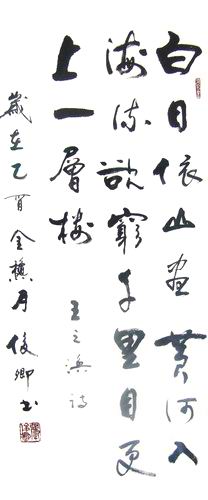 白日依山盡黄河入
海流欲窮千里目更
上一層樓 王之渙詩
歲在乙酉金月俊卿書